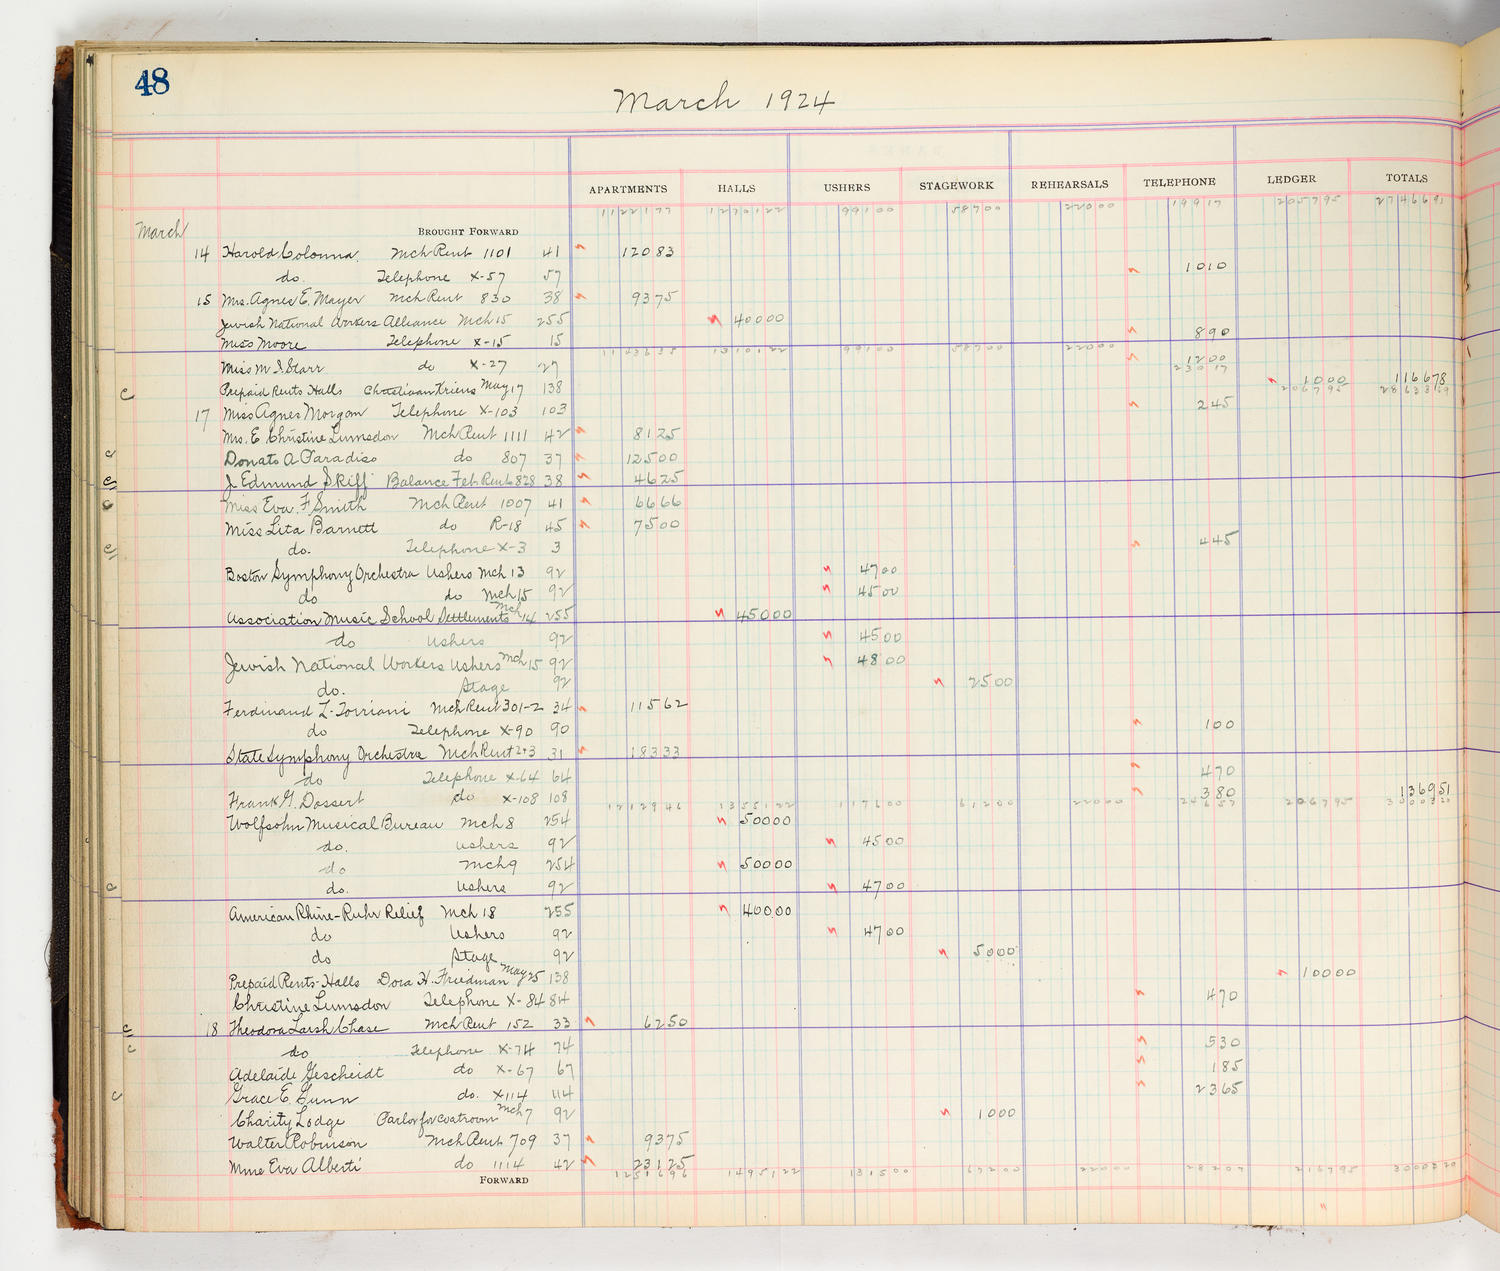 48
March 1924
APARTMENTS HALLS USHERS STAGEWORK REHEARSALS TELEPHONE LEDGER TOTALS
March BROUGHT FORWARD 1122177 1270122 99100 58700 22000 19917 205795 2746691
14 Harold Colonna. Mch Rent 1101 41 12083
do. Telephone X-57 57 1010
15 Mrs. Agnes E. Mayer Mch Rent 830 38 9375
Jewish National Workers Alliance Mch 15 255 40000
Miss Moore Telephone X-15 15 890
1143635 1310122 99100 58700 22000
Miss M I. Starr do X-27 27 1200
23017
Prepaid Rents Halls Christiaan Kriens May 17 138 1000 116678
206795 2863369
17 Miss Agnes Morgan Telephone X-103 103 245
Mrs. E. Christine Lumsdon Mch Rent 1111 42 8125
c Donato A Paradiso do 807 37 12500
c J. Edmund Skiff Balance Feb Rent 828 38 4625
c Miss Eva. F. Smith Mch Rent 1007 41 6666
Miss Lita Barnett do R-18 45 7500
c do. Telephone X-3 3 445
Boston Symphony Orchestra Ushers Mch 13 92 4700
do do Mch 15 92 4500
Association Music School Settlements Mch 14 255 45000
do Ushers 92 4500
Jewish National Workers Ushers Mch 15 92 4800
do. Stage 92 2500
Ferdinand L. Torriani Mch Rent 301-2 34 11562
do Telephone X-90 90 100
State Symphony Orchestra Mch Rent 2+3 31 18333
do Telephone X-64 64 470
Frank G. Dossert do X-108 108 380 136951
1212946 1355122 117600 61200 22000 24657 206795 3000320
Wolfsohn Musical Bureau Mch 8 254 50000
do. Ushers 92 4500
do Mch 9 254 50000
c do. Ushers 92 4700
American Rhine-Ruhr Relief Mch 18 255 40000
do Ushers 92 4700
do Stage 92 5000
Prepaid Rents-Halls Dora H. Friedman May 25 138 10000
Christine Lumsdon Telephone X-84 84 470
c 18 Theodora Larsh Chase Mch Rent 152 33 6250
c do Telephone X-74 74 530
Adelaide Gescheidt do X-67 67 185
c Grace E. Gunn do. X-114 114 2365
Charity Lodge Parlor for coatroom Mch 7 92 1000
Walter Robinson Mch Rent 709 37 9375
Mme Eva Alberti do 1114 42 23125
FORWARD 1251696 1495122 131500 67200 22000 28207 216795 3000320